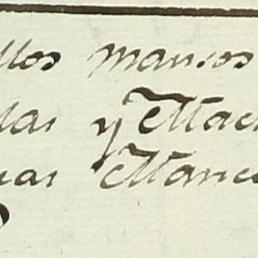 llos mansos
las y Mach
uas Mans